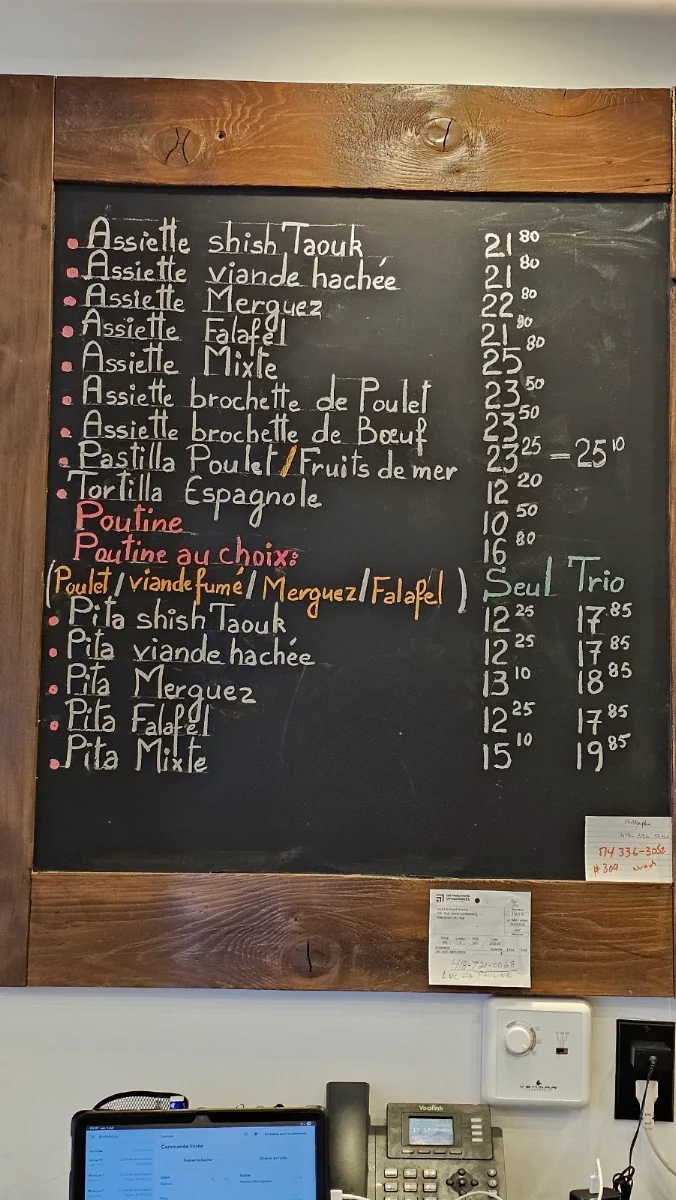 • Assiette shish Taouk 21 80
• Assiette viande hachée 21 80
• Assiette Merguez 22 80
• Assiette Falafel 21 80
• Assiette Mixte 25 80
• Assiette brochette de Poulet 23 50
• Assiette brochette de Bœuf 23 50
• Pastilla Poulet / Fruits de mer 23 25 = 25 10
• Tortilla Espagnole 12 20
Poutine 10 50
Poutine au choix: 16 80
(Poulet / viande fumé / Merguez / Falafel) Seul Trio
• Pita shish Taouk 12 25 17 85
• Pita viande hachée 12 25 17 85
• Pita Merguez 13 10 18 85
• Pita Falafel 12 25 17 85
• Pita Mixte 15 10 19 85
#309
418-721-0069
Yealink
Commande livrée